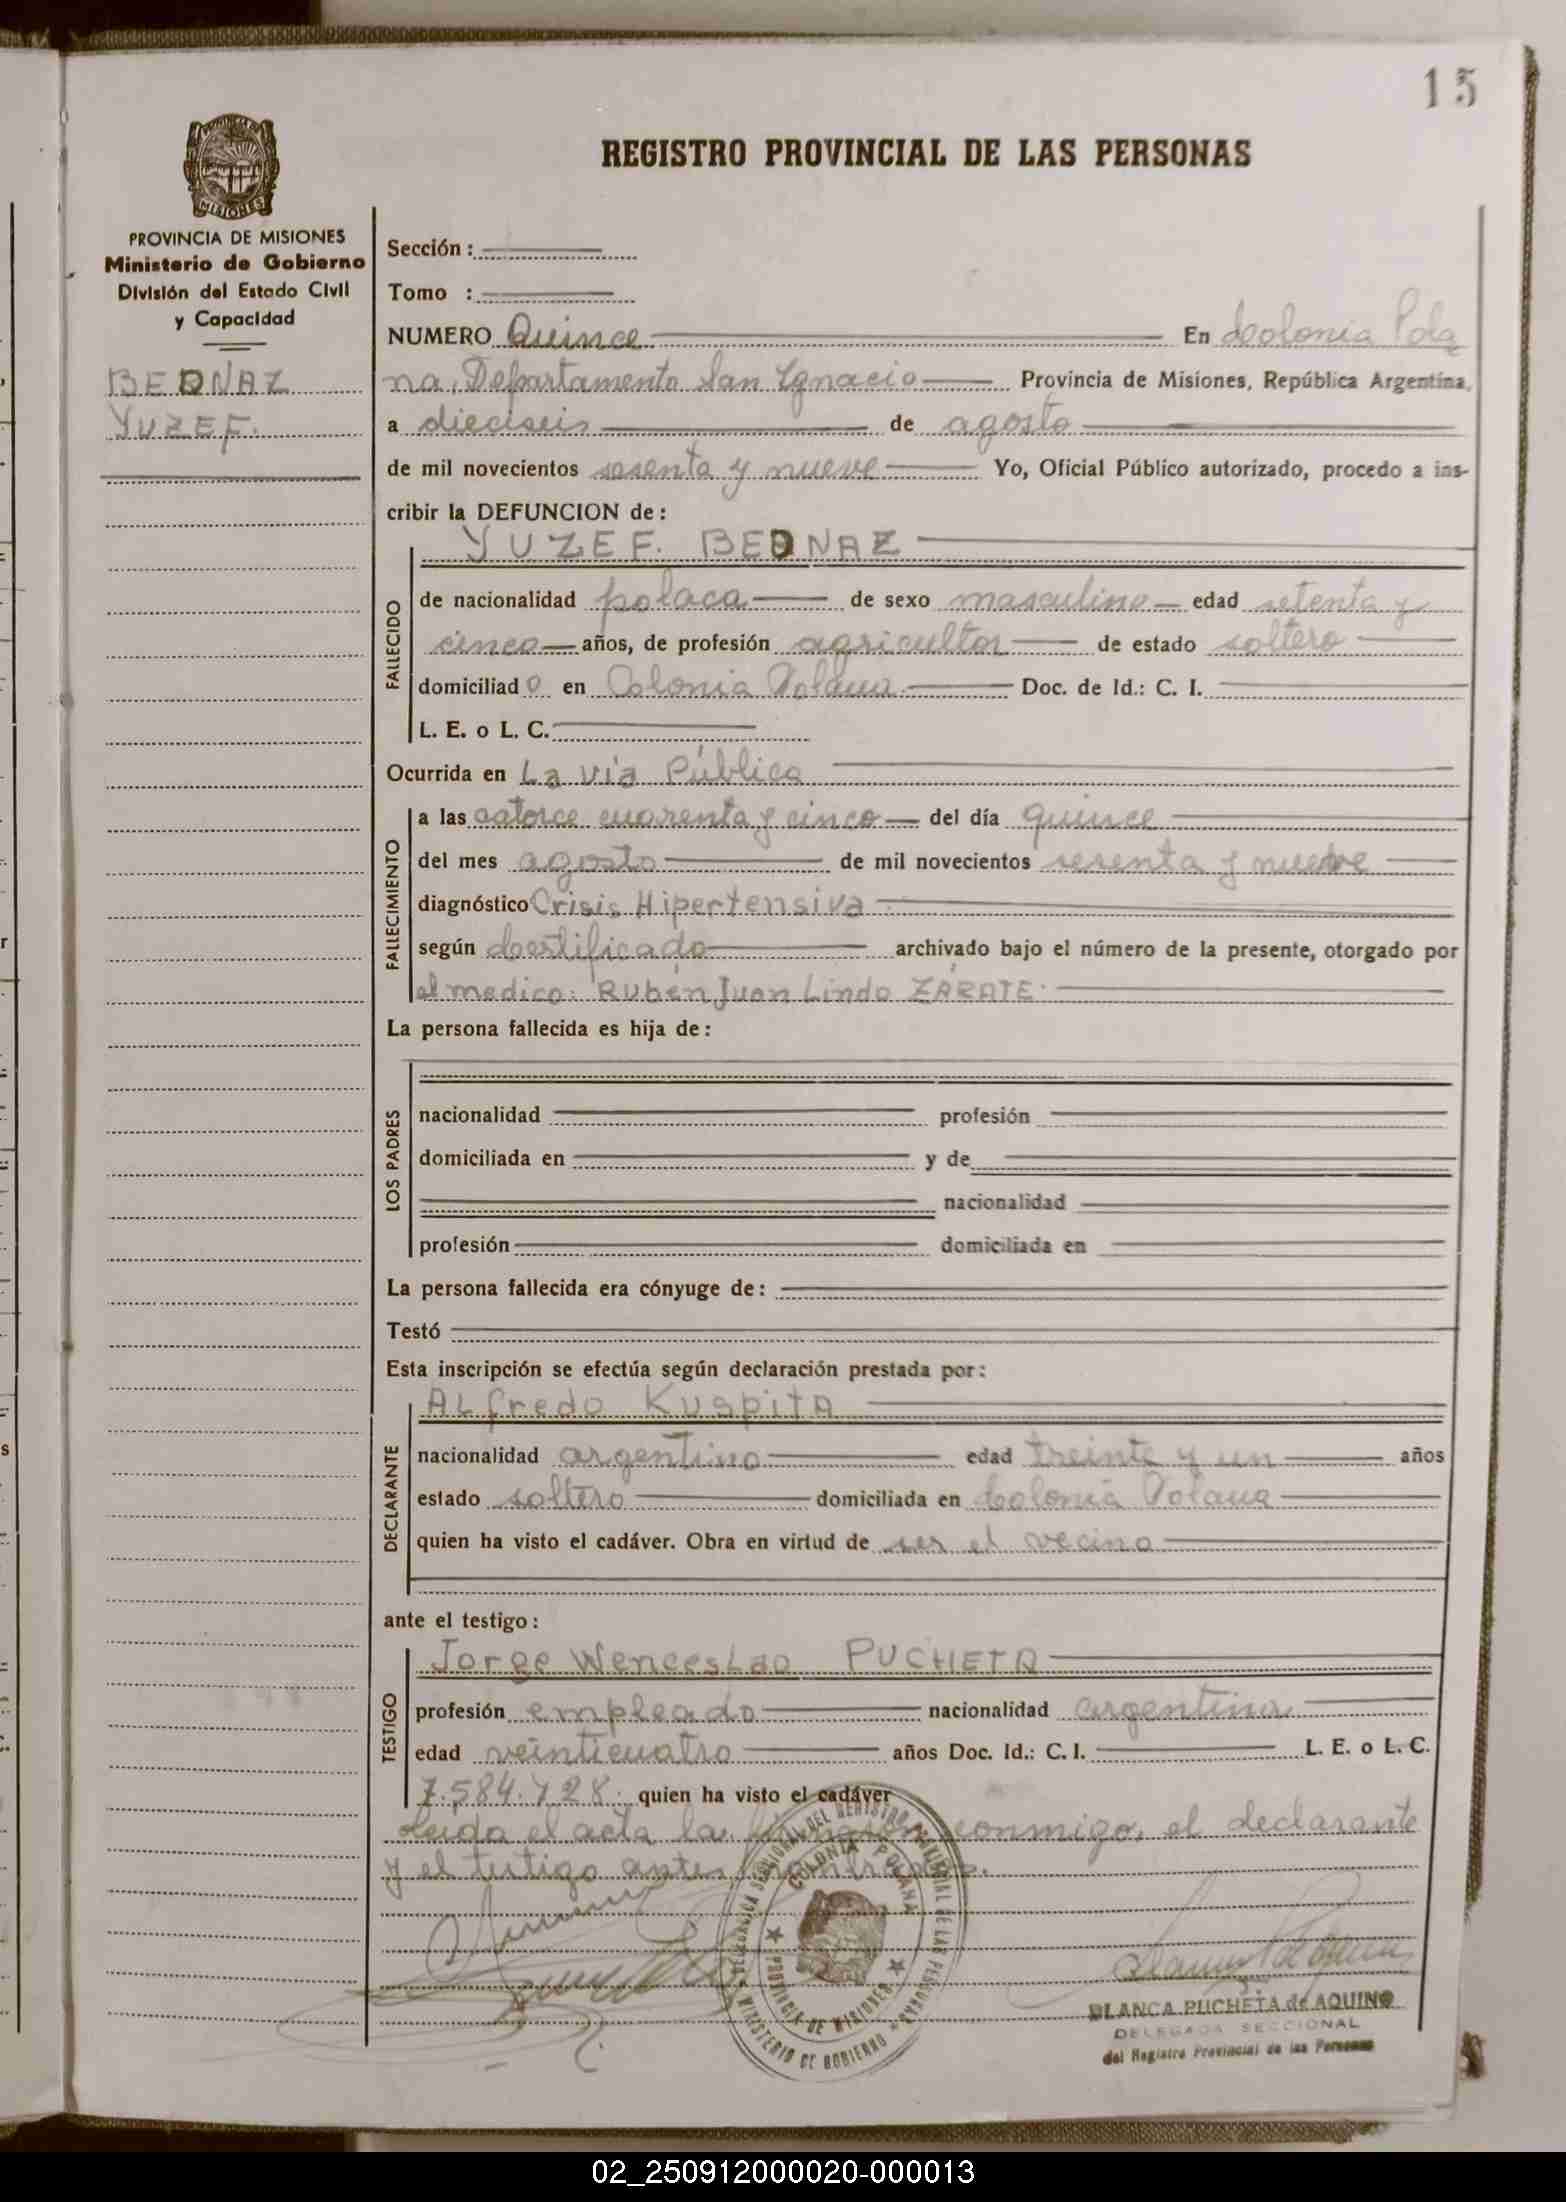 15
REGISTRO PROVINCIAL DE LAS PERSONAS
MISIONES
PROVINCIA DE MISIONES
Ministerio de Gobierno
División del Estado Civil
y Capacidad
BEDNAZ
YUZEF.
Sección :
Tomo :
NUMERO Quince En Colonia Pola
na, Departamento San Ignacio Provincia de Misiones, República Argentina,
a dieciseis de agosto
de mil novecientos sesenta y nueve Yo, Oficial Público autorizado, procedo a ins-
cribir la DEFUNCION de :
YUZEF. BEDNAZ
FALLECIDO
de nacionalidad polaca de sexo masculino edad setenta y
cinco años, de profesión agricultor de estado soltero
domiciliado en Colonia Polana Doc. de Id.: C. I.
L. E. o L. C.
Ocurrida en La vía Pública
FALLECIMIENTO
a las catorce cuarenta y cinco del día quince
del mes agosto de mil novecientos sesenta y nueve
diagnóstico Crisis Hipertensiva
según Certificado archivado bajo el número de la presente, otorgado por
el medico: Rubén Juan Lindo ZÁRATE.
La persona fallecida es hija de :
LOS PADRES
nacionalidad profesión
domiciliada en y de
nacionalidad
profesión domiciliada en
La persona fallecida era cónyuge de :
Testó
Esta inscripción se efectúa según declaración prestada por :
ALfredo KuspitA
DECLARANTE
nacionalidad argentino edad treinta y un años
estado soltero domiciliada en Colonia Polana
quien ha visto el cadáver. Obra en virtud de ser el vecino
ante el testigo :
TESTIGO
Jorge Wenceslao PUCHETA
profesión empleado nacionalidad argentina
edad veinticuatro años Doc. Id.: C. I. L. E. o L. C.
7.584.728. quien ha visto el cadáver
Leida el acta la firmaron conmigo, el declarante
y el testigo antes
COLONIA POLANA
PROVINCIA DE MISIONES
MINISTERIO DE GOBIERNO
BLANCA PUCHETA de AQUINO
DELEGADA SECCIONAL
del Registro Provincial de las Personas
02_250912000020-000013